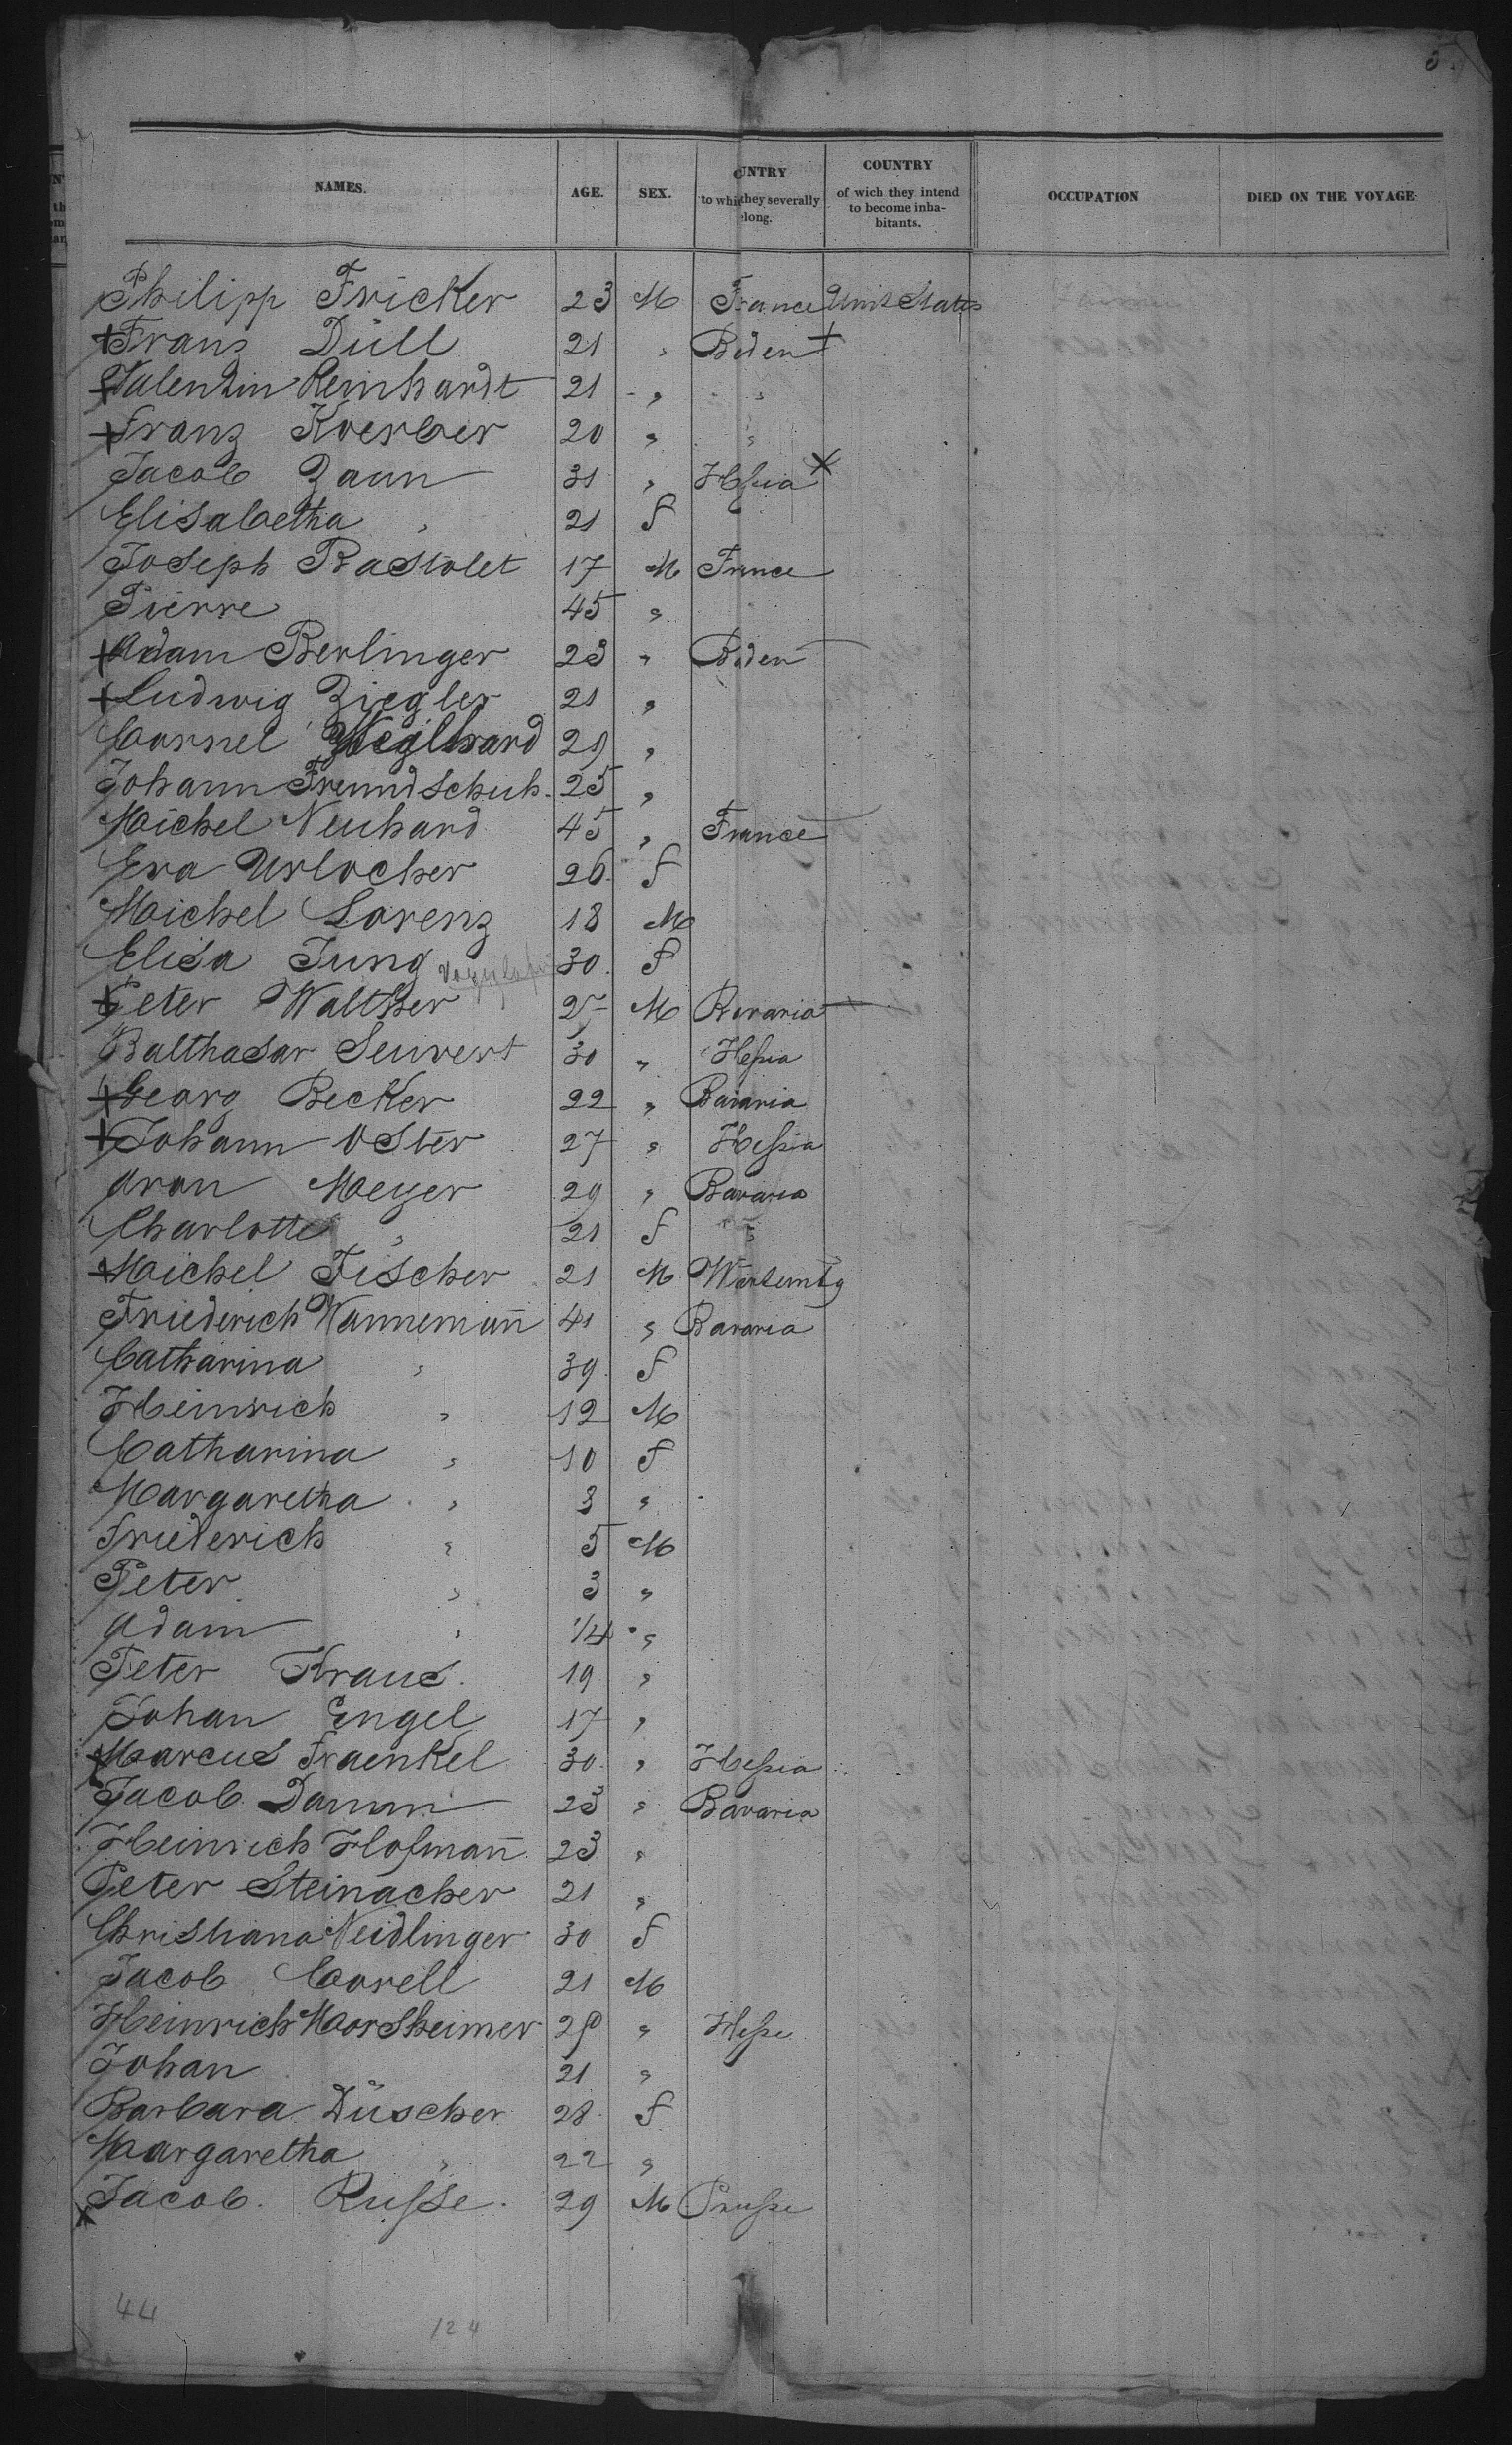 5
NAMES. AGE. SEX. UNTRY to whi they severally elong. COUNTRY of wich they intend to become inhabitants. OCCUPATION DIED ON THE VOYAGE
Philipp Fricker 23 M France Unit States
Franz Düll 21 " Baden
Valentin Reinhardt 21 " "
Franz Koerber 20 " "
Jacob Zaun 31 " Hessia
Elisabetha " 21 f
Joseph Rastolet 17 M France
Pierre 45 "
Adam Berlinger 23 " Baden
Ludwig Ziegler 21 "
Cornel 29 "
Johann Freundschuh. 25 "
Michel Neuhard 45 " France
Eva Urlocher 26 f
Michel Lorenz 18 M
Elisa Jung 30 f
Peter Walther M Bavaria
Balthasar Seuvert 30 " Hessia
Georg Becker 22 " Bavaria
Johann Oster 27 " Hessia
Aron Meyer 29 " Bavaria
Charlotte " 21 f "
Michel Fischer 21 M Wurtembg
Friederich Wannemañ 41 " Bavaria
Catharina " 39 f
Heinrich " 12 M
Catharina " 10 f
Margaretha " 3 "
Friederich " 5 M
Peter " 3 "
Adam " 1/4 "
Peter Kraus 19 "
Johan Engel 17 "
Marcus Fraenkel 30 " Hessia
Jacob Damm 23 " Bavaria
Heinrich Hofmañ 23 "
Peter Steinacher 21 "
Christiana Neidlinger 30 f
Jacob Corell 21 M
Heinrich Morsheimer " Hesse
Johan 21 "
Barbara Düscher 28 f
Margaretha " 22 "
Jacob Russe 29 M Prusse
44 124